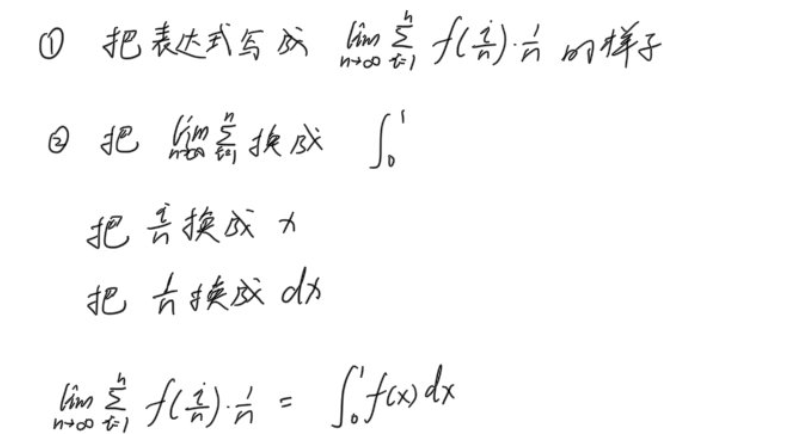 ① 把表达式写成 lim_{n→∞} ∑_{i=1}^{n} f(i/n)·1/n 的样子
② 把 lim_{n→∞} ∑_{i=1}^{n} 换成 ∫_0^1
把 i/n 换成 x
把 1/n 换成 dx
lim_{n→∞} ∑_{i=1}^{n} f(i/n)·1/n = ∫_0^1 f(x) dx